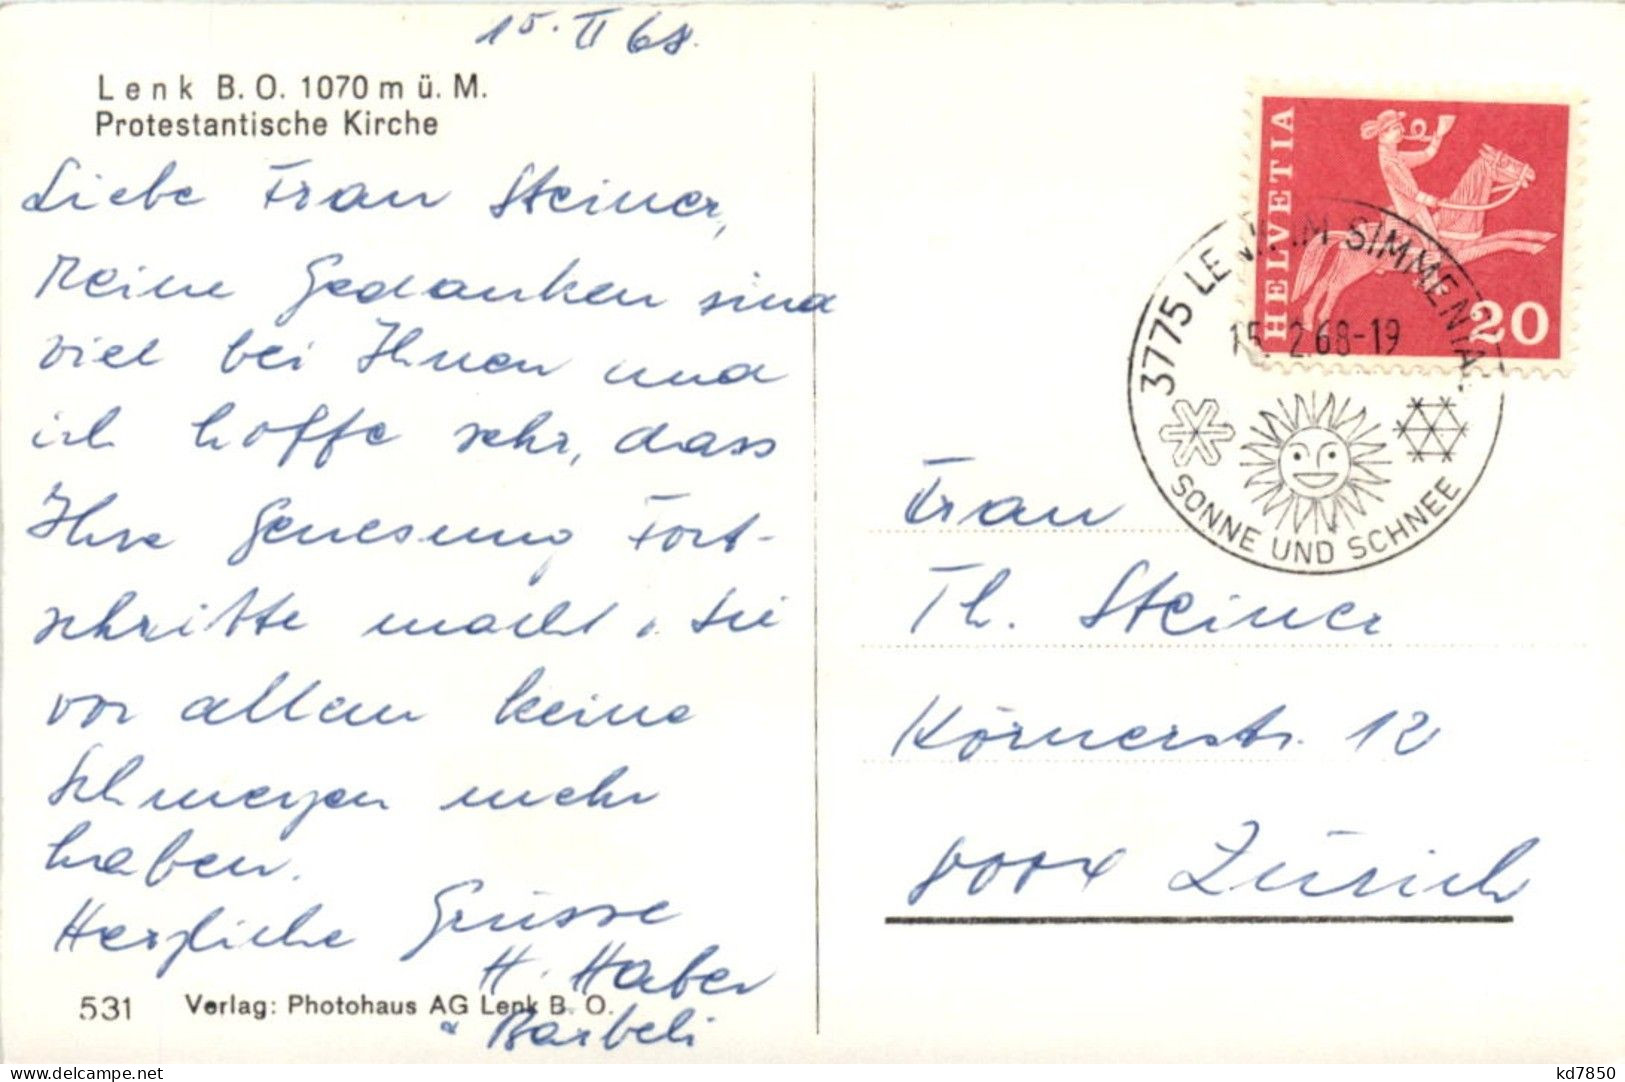 15. II 68.
Lenk B.O. 1070 m ü. M.
Protestantische Kirche
Liebe Frau Steiner,
Meine Gedanken sind
viel bei Ihnen und
ich hoffe sehr, dass
Ihre Genesung Fort-
schritte macht, Sie
vor allem keine
Schmerzen mehr
haben.
Herzliche Grüsse
H. Haber
& Barbeli
531 Verlag: Photohaus AG Lenk B. O.
HELVETIA
20
3775 LENK IM SIMMENTAL
15. 2.68-19
SONNE UND SCHNEE
Frau
Th. Steiner
Körnerstr. 12
8004 Zürich
kd7850